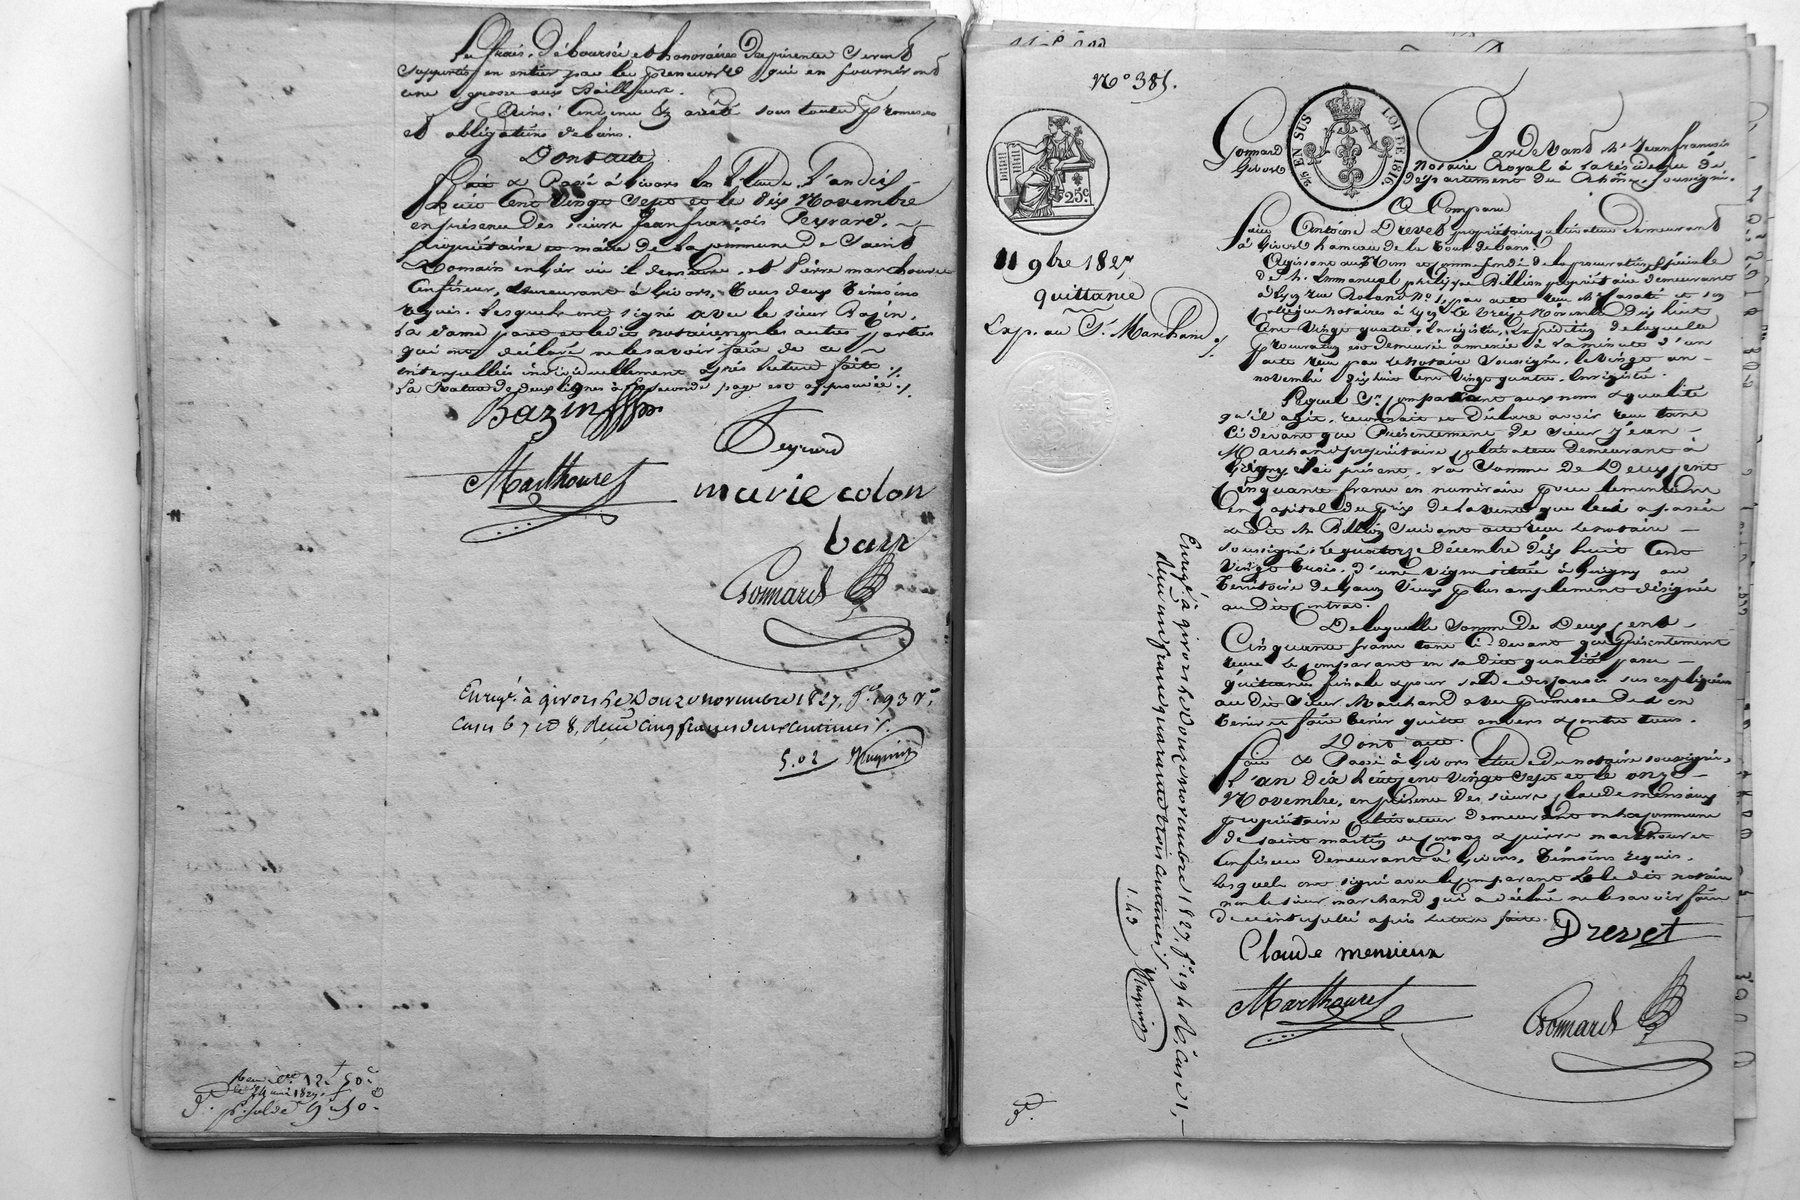 Les frais, déboursés et honoraires des présentes seront
supportés en entier par les preneurs qui en fourniront
une grosse aux Bailleurs.
Ainsi convenu et arrêté sous toutes promesses
et obligations de biens.
Dont acte
Fait et Passé à Givors en l'Etude, l'an dix
huit cent vingt sept et le dix Novembre
en présence des sieurs Jean françois Peyrard,
propriétaire et maire de la commune de Saint
Romain en Gier où il demeure, et Pierre marthouret
Confiseur, demeurant à Givors, tous deux témoins
requis. Lesquels ont signé avec le sieur Bazin,
la dame et le dit notaire, non les autres parties
qui ont déclaré ne le savoir faire de ce
interpellées individuellement après lecture faite ./.
la Rature de deux lignes à la seconde page est approuvée ./.
Bazin
Peyrard
Marthouret
marie colon
barr
Gonnard
Enregé à givors le Douze novembre 1827, fo 193 Vo,
cases 6 7 et 8, Reçu cinq francs deux centimes ./.
5.02
12 50c
le 24 1827
p. solde 9 50
No 385.
25c.
11 9bre 1827
quittance
Exp. au Sr. Marchand ./.
Gonnard
Givors
2/5 EN SUS LOI DE 1816.
Pardevant Me Jean francois
Notaire Royal à la résidence de
département du Rhône, soussigné.
A Comparu
Sieur Antoine Drevet propriétaire cultivateur demeurant
à Givors hameau de la Tour de bans
Agissant au Nom et comme fondé de la procuration spéciale
de M. Emmanuel philippe Billion propriétaire demeurant
à Lyon rue Roland No 1, par acte reçu Me Casati et son
collègue notaires à Lyon le treize Novembre dix huit
Cent Vingt quatre, Enregistré, Expédition de laquelle
procuration est demeurée annexée à la minute d'un
acte reçu par le Notaire soussigné, le vingt un
novembre dix huit Cent Vingt quatre, Enregistré.
Lequel Sr. comparant aux nom et qualité
qu'il agit, reconnait et Déclare avoir reçu tant
Ci devant que Présentement de sieur Jean
Marchand propriétaire cultivateur demeurant à
Grigny ici présent, la Somme de Deux cent
Cinquante francs en numéraire pour le montant
en capital du prix de la vente que lui a passée
le dit M. Billion suivant acte reçu le notaire
soussigné, le quatorze Décembre dix huit Cent
Vingt trois, d'une vigne située à Grigny au
territoire de plus amplement désignée
au dit Contrat.
De laquelle Somme de Deux cent
Cinquante francs tant Ci-devant que présentement
reçue le comparant en sa dite qualité passe
quittance finale et pour solde des causes sus expliquées
au dit Sieur Marchand avec promesse de l'en
tenir et faire tenir quitte envers et contre tous.
Dont acte.
fait et Passé à Givors Etude du notaire soussigné,
l'an dix huit cent Vingt sept et le onze
Novembre, en présence des sieurs Claude mensieux
propriétaire cultivateur demeurant en la commune
de saint martin de cornas et pierre marthouret
Confiseur demeurant à Givors, témoins requis.
Lesquels ont signé avec le comparant et le dit notaire
non le sieur marchand qui a déclaré ne le savoir faire
de ce interpellé après lecture faite.
Drevet
Claude mensieux
Marthouret
Gonnard
Enregé à givors le Douze novembre 1827, fo 194 Ro, case 1,
Reçu un franc quarante trois centimes ./.
1.43